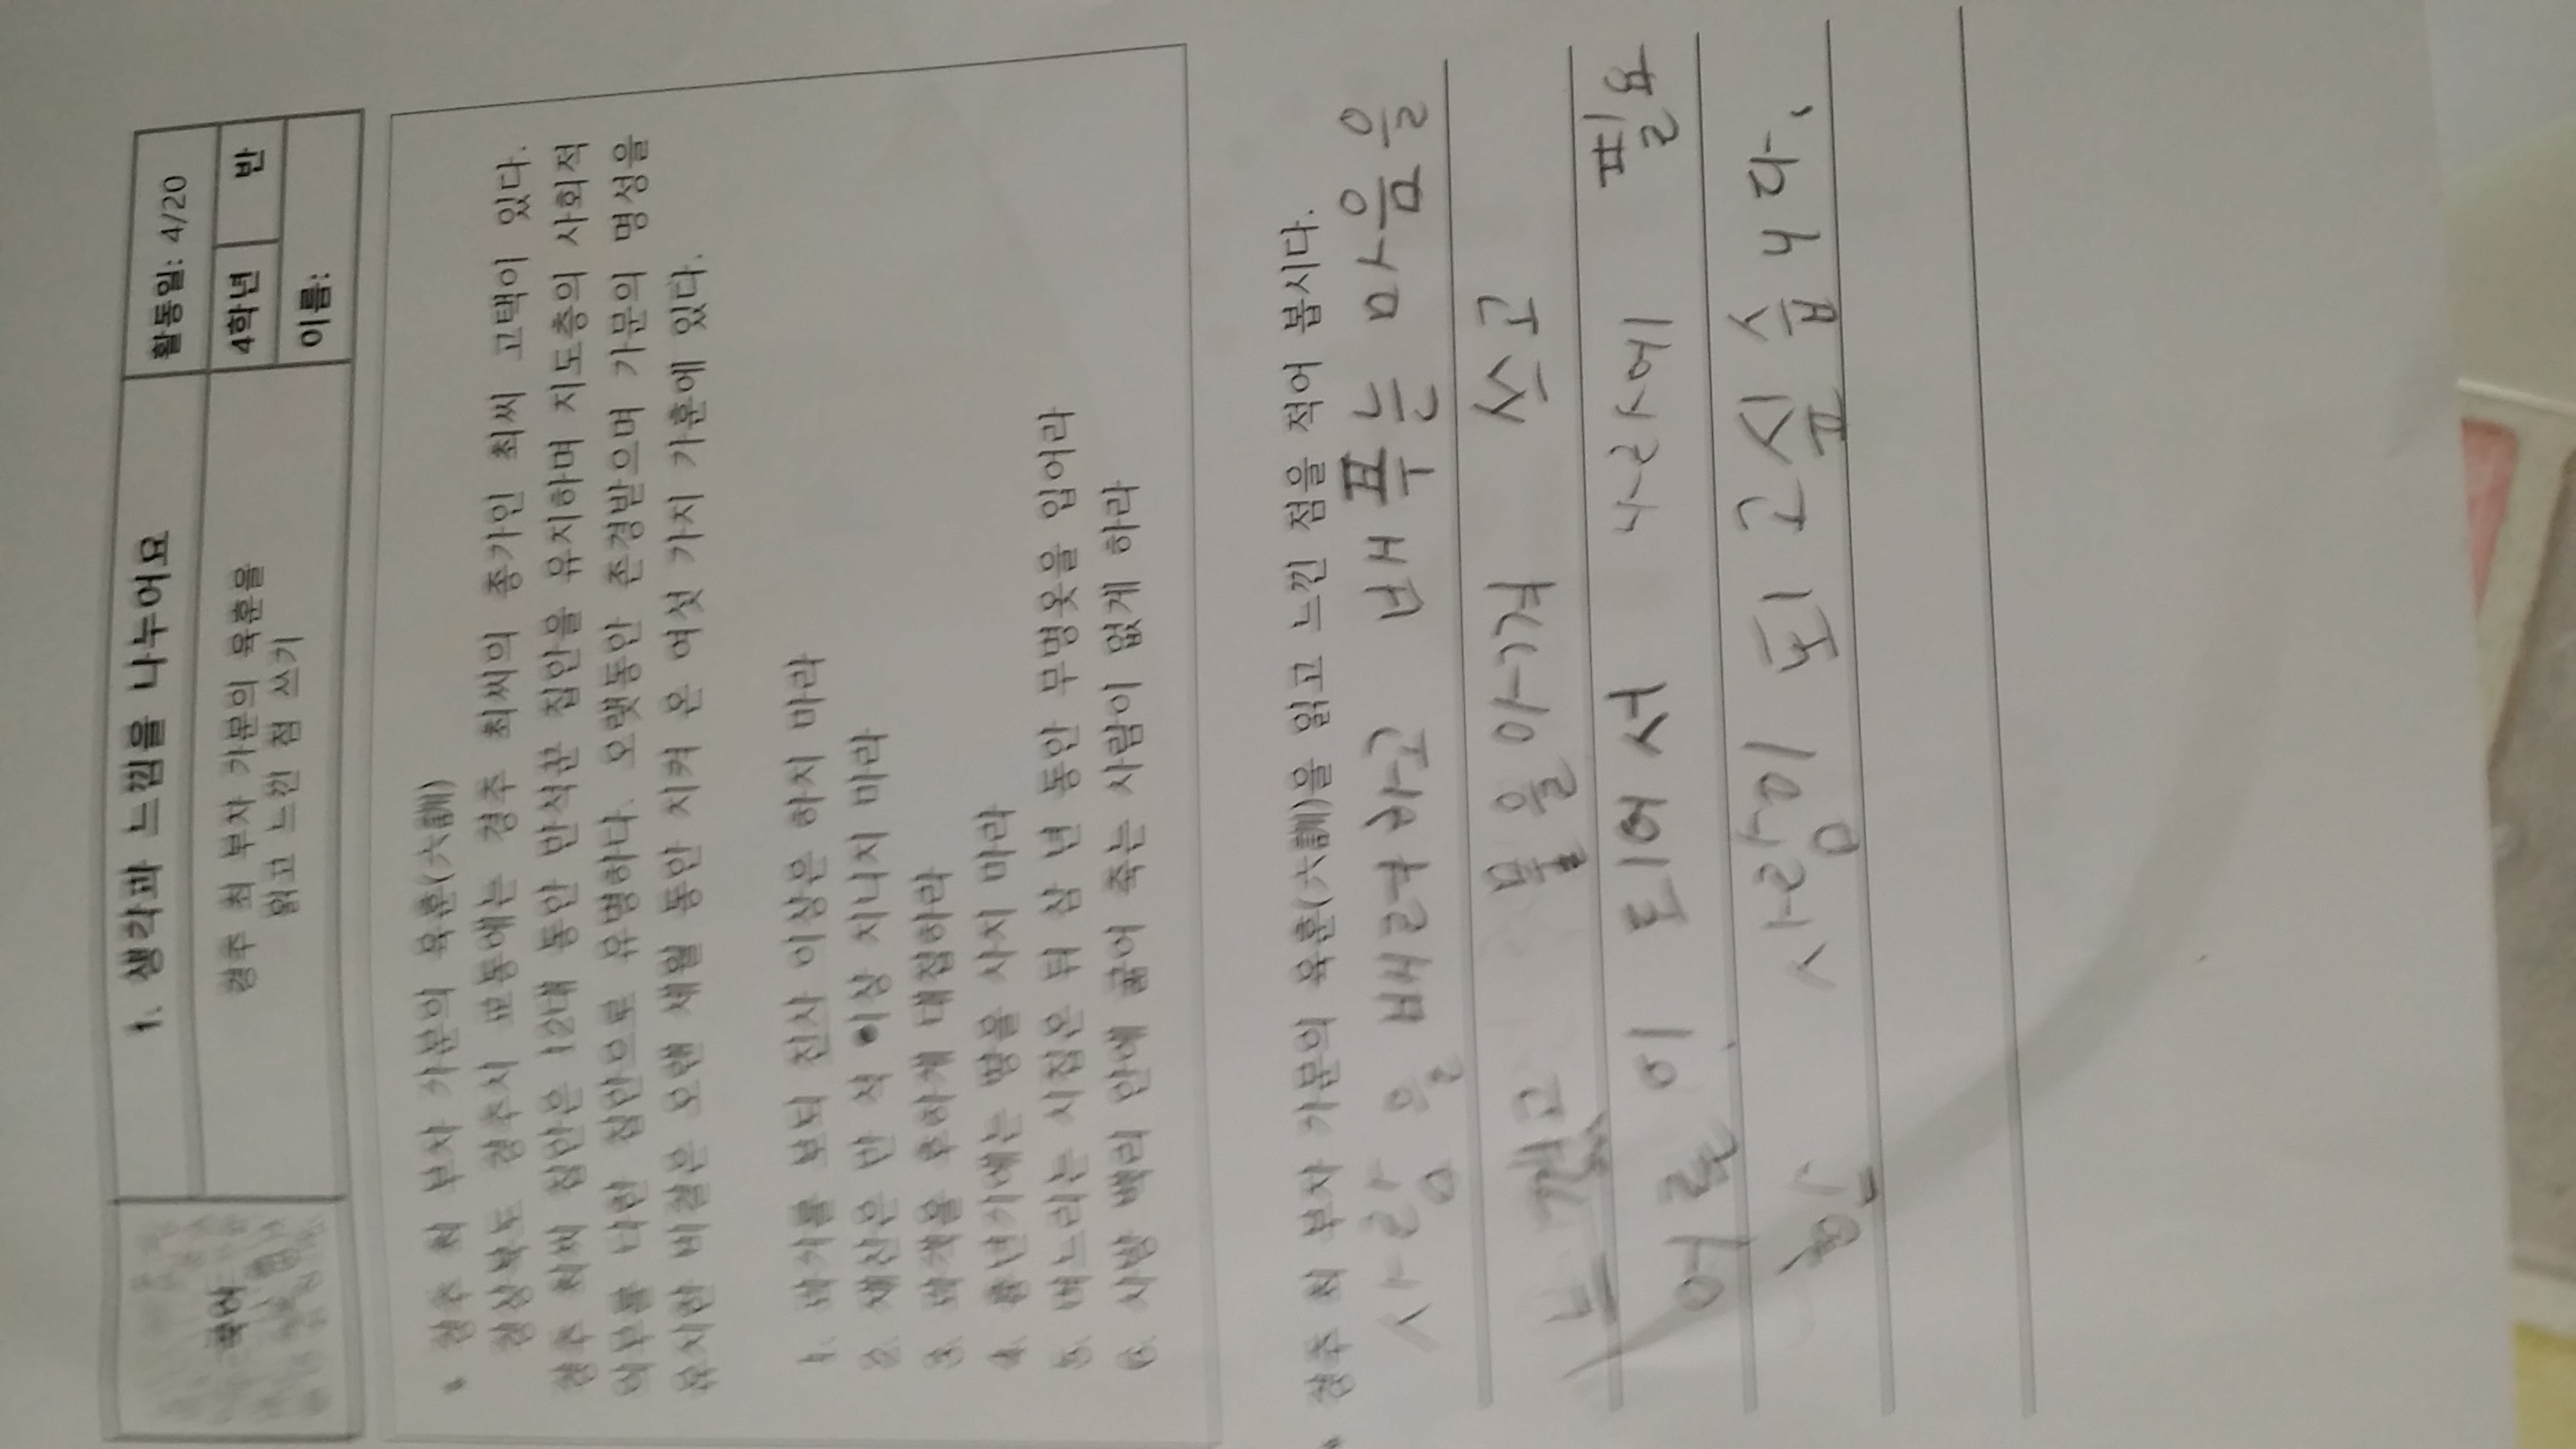 국어
1. 생각과 느낌을 나누어요
활동일: 4/20
경주 최 부자 가문의 육훈을
읽고 느낀 점 쓰기
4학년 반
이름:
* 경주 최 부자 가문의 육훈(六訓)
경상북도 경주시 교동에는 경주 최씨의 종가인 최씨 고택이 있다.
경주 최씨 집안은 12대 동안 만석꾼 집안을 유지하며 지도층의 사회적
의무를 다한 집안으로 유명하다. 오랫동안 존경받으며 가문의 명성을
유지한 비결은 오랜 세월 동안 지켜 온 여섯 가지 가훈에 있다.
1. 벼슬을 보되 진사 이상은 하지 마라
2. 재산은 만 석 이상 지니지 마라
3. 과객을 후하게 대접하라
4. 흉년기에는 땅을 사지 마라
5. 며느리는 시집온 뒤 삼 년 동안 무명옷을 입어라
6. 사방 백리 안에 굶어 죽는 사람이 없게 하라
* 경주 최 부자 가문의 육훈(六訓)을 읽고 느낀 점을 적어 봅시다.
사람을 배려하고 베푸는 마음을
느꼈고 물을 아껴 쓰고
어른이 되어서 나라에 필요
한 사람이 되고 싶습니다.